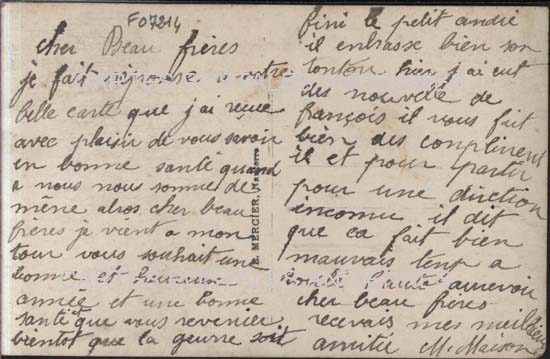 F07214
cher Beau frères
je fait réponse a votre
belle carte que j'ai reçue
avec plaisir de vous savoir
en bonne santé quand
a nous nous somme de
même alors cher beau
frères je vient a mon
tour vous souhait une
bonne et heureuse
année et une bonne
santé que vous revenier
bientot que la geurre soit
fini le petit andré
il enbrasse bien son
tonton hier j'ai eut
des nouvelle de
françois il vous fait
bien des compliment
il et pour partir
pour une direction
inconnu il dit
que ca fait bien
mauvais temp a
aurevoir
cher beau frères
recevais mes meilleurs
amitiée M. Maison
E. MERCIER,